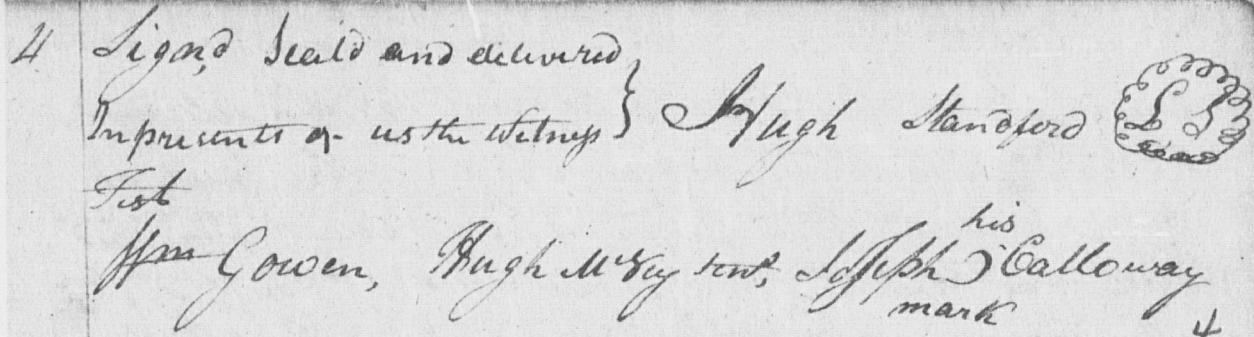 4 Signd Seald and delivered
In presents of us the Witness } Hugh Standford L S
Test
his
Wm Gowen, Hugh McVay senr, Joseph ) Calloway
mark